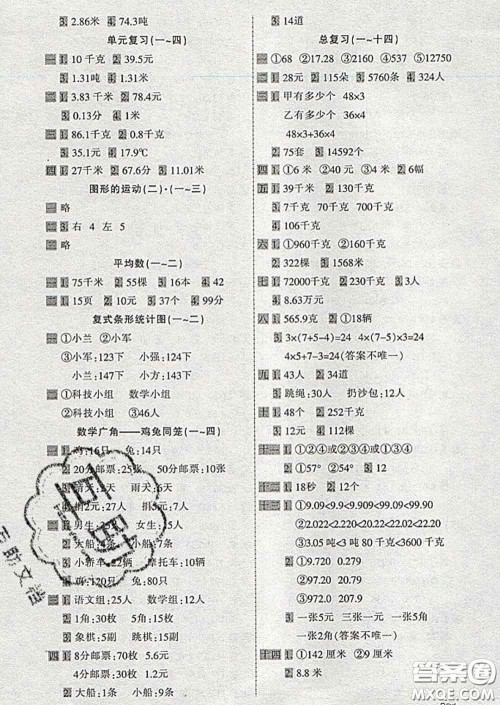 3 2.86米 4 74.3吨
单元复习(一~四)
一 1 10千克 2 39.5元
3 1.31吨 4 1.31米
二 1 3.83千米 2 78.4元
3 0.13分 4 1米
三 1 86.1千克 2 0.3米
3 35.1元 4 17.9℃
四 1 27千米 2 67.6分 3 11.01米
图形的运动(二)·(一~三)
一 略
二 1 右 4 左 5
三 略
平均数(一~二)
一 1 75千米 2 55米 3 16本 4 42
二 1 15页 2 10元 3 37个 4 99分
复式条形统计图(一~二)
一 ①小兰 ②小方
③小军:123下 小强:124下
小兰:107下 小方:143下
二 ①科技小组 数学小组
②科技小组 ③46人
数学广角——鸡兔同笼(一~四)
一 1 鸡:16只 兔:14只
2 20分邮票:25张 50分邮票:10张
3 晴天:2天 雨天:6天
4 捐2元:17人 捐5元:7人
二 1 男生:25人 女生:5人
2 大船:4条 小船:6条
3 小轿车:22辆 摩托车:10辆
4 鹅:120只
三 1 语文组:25人 数学组:12人
2 1角:30枚 5角:70枚
3 象棋:5副 跳棋:15副
四 1 8分邮票:70枚 5.6元
4分邮票:30枚 1.2元
2 大船:1条 小船:9条
3 14道
总复习(一~十四)
一 1 ①68 ②17.28 2 ①2 ②271
二 1 28元 2 115朵 3 5760条 4 324人
三 1 甲有多少个 48×3
乙有多少个 36×4
48×3+36×4
2 75套 3 14592个
四 1 ①6米 ②40元 ③4米 2 6幅
五 1 39千米 2 130千米
3 7千克 70千克 700千克
4 76千克
六 1 ①960千克 ②160千克
2 322棵 3 1568米
七 1 72000千克 2 230千克 3 3人
4 8.63万元
八 1 565.9克 2 ①18辆
3 3×(7+5-4)=24 3×(7-4+5)=24
4×5+7-3=24(答案不唯一)
九 1 43人 2 34道
3 跳绳:30人 扔沙包:12人
十 1 48个 2 252千克
3 1250千克
十一 1 ①②④或②③④或①②③
2 ①57° ②51°
十二 1 18秒 2 12个
十三 1 ①9.09<9.9<9.909<9.99<9.990
②2.022<2.20<2.202<2.220
③3吨<3吨80千克<3600千克
2 ①9.720 0.279
②9.720 2.079
③972.0 297.0
3 一张5元 三张一元 一张5角
一张2角(答案不唯一)
十四 1 ①142厘米 ②119厘米
2 8.8米
答案圈
MXQE.COM